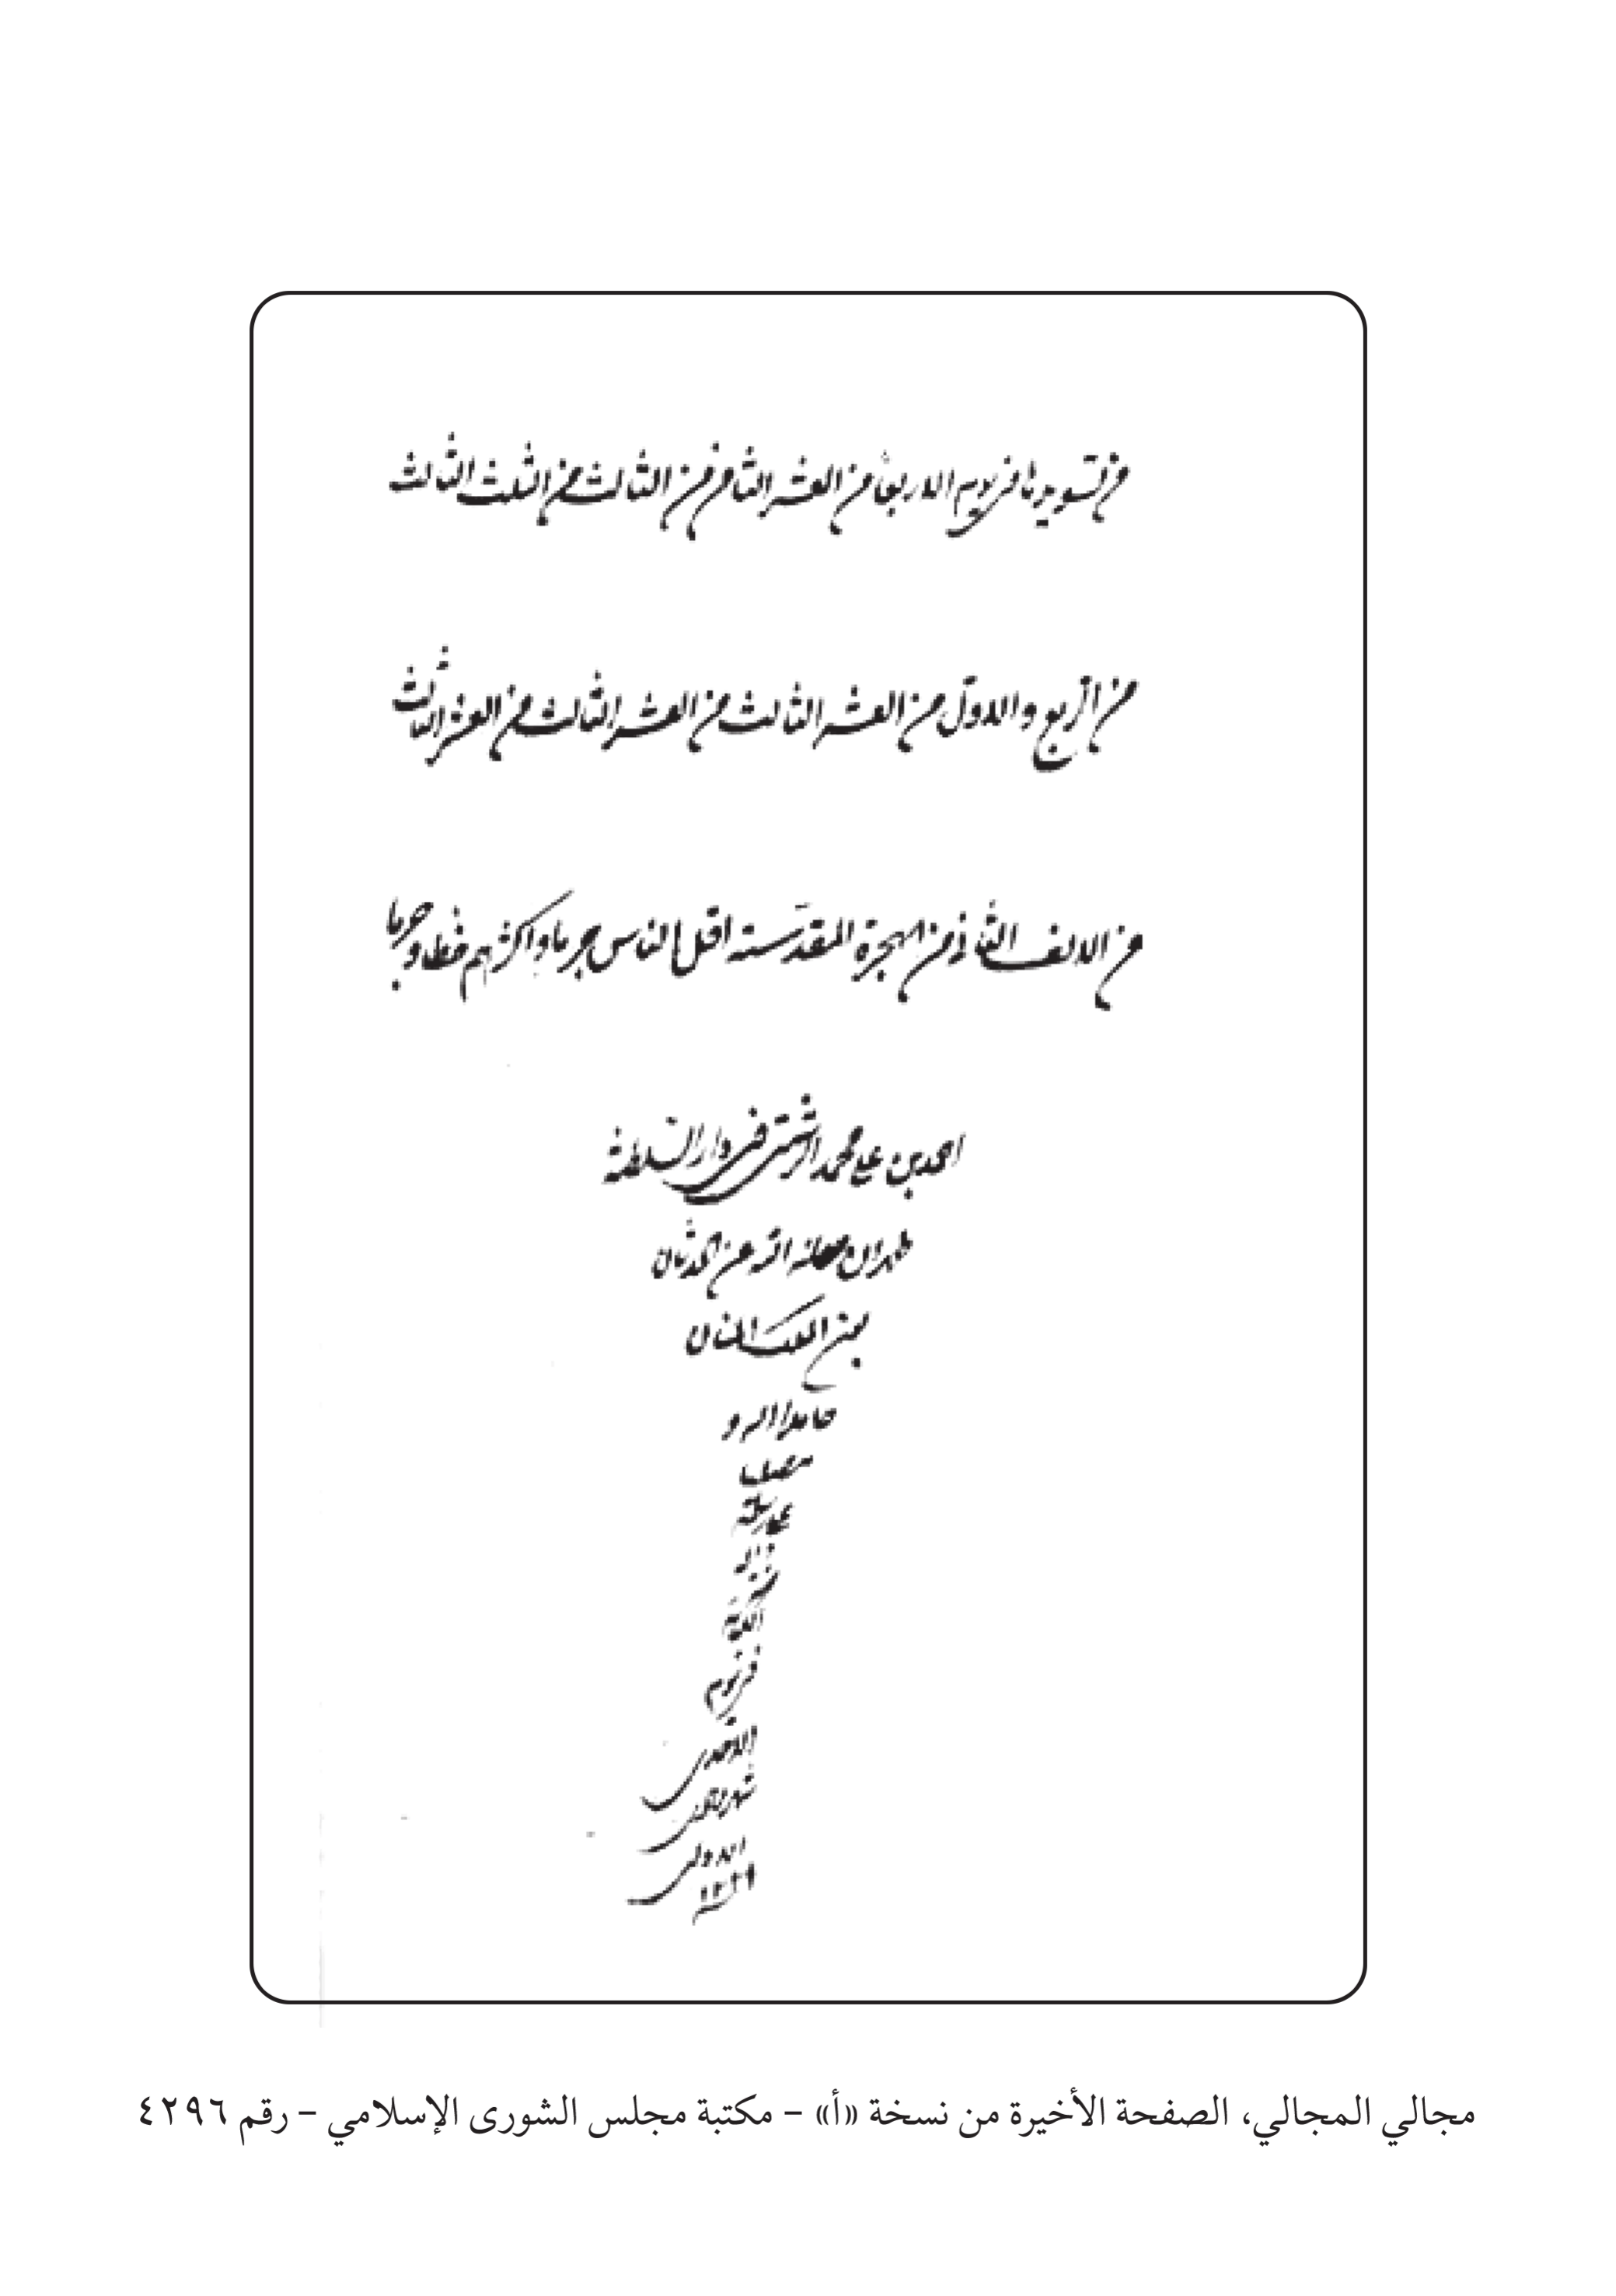 من تسويدها في يوم الاربعا من العشر الثامن من الثالث من الثلث الثالث
من الربع والاول من العشر الثالث من العشر الثالث من العشر الثالث
من الالف الثاني من الهجرة المقدسة اقل الناس جرما واكثرهم خطا وجرما
احمد بن علي محمد في دار السلطنة
طهران صانه الله عن الحدثان
بمن الملك المنان
حامدا لله و
مصليا
في يوم
الاحد
شهر جمادى
الاولى
مجالي المجالي، الصفحة الأخيرة من نسخة «أ» – مكتبة مجلس الشورى الإسلامي – رقم ٤٢٩٦